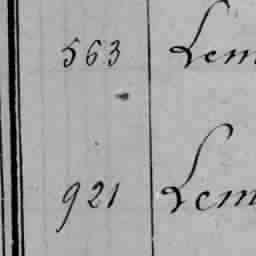 563 Lem
921 Lem